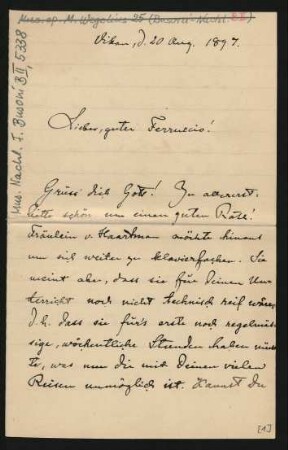 Mus. ep. M. Wegelius 25 (Busoni-Nachl. B II)
Mus. Nachl. F. Busoni B II, 5338
Vikan, d. 20 Aug. 1897.
Lieber, guter Ferruccio!
Grüss dich Gott! Zu allererst
bitte schön um einen guten Rat!
Fräulein v. Haartman möchte hinaus
um sich weiter zu
Sie
meint aber, dass sie für deinen Un-
terricht noch nicht technisch reif wäre,
d.h. dass sie für's erste noch regelmäs-
sige, wöchentliche Stunden haben müss-
te, was nun dir mit deinen vielen
Reisen unmöglich ist. Kannst du
[1]